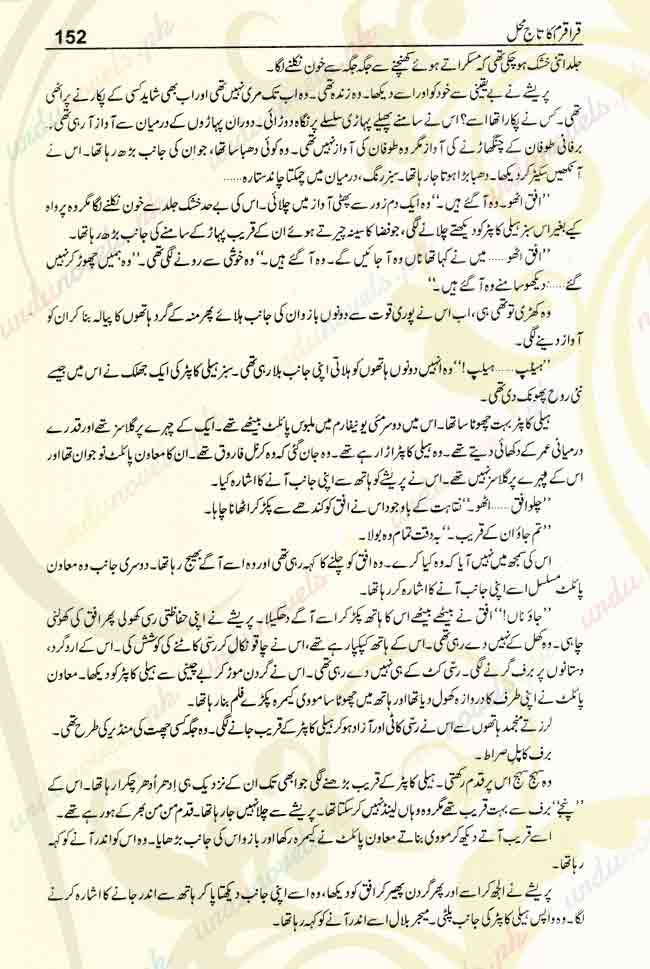 152
قراقرم کا تاج محل
جلد اتنی خشک ہو چکی تھی کہ مسکراتے ہوئے کھنچنے سے جگہ جگہ سے خون نکلنے لگا۔
پریشے نے بے یقینی سے خود کو اور اسے دیکھا۔ وہ زندہ تھی۔ وہ اب تک مری نہیں تھی اور اب بھی شاید کسی کے پکارنے پر اٹھی
تھی۔ کس نے پکارا تھا اسے؟ اس نے سامنے پھیلے پہاڑی سلسلے پر نگاہ دوڑائی۔ دور ان پہاڑوں کے درمیان سے آواز آ رہی تھی۔
برفانی طوفان کے چنگھاڑنے کی آواز مگر وہ طوفان کی آواز نہیں تھی۔ وہ کوئی دھبا سا تھا، جو ان کی جانب بڑھ رہا تھا۔ اس نے
آنکھیں سکیڑ کر دیکھا۔ دھبا بڑا ہوتا جا رہا تھا۔ سبز رنگ، درمیان میں چمکتا چاند ستارہ......
’’افق اٹھو۔ وہ آ گئے ہیں۔‘‘ وہ ایک دم زور سے پھٹی آواز میں چلائی۔ اس کی بے حد خشک جلد سے خون نکلنے لگا مگر وہ پرواہ
کیے بغیر اس سبز ہیلی کاپٹر کو دیکھتے چلانے لگی، جو فضا کا سینہ چیرتے ہوئے ان کے قریب پہاڑ کے سامنے کی جانب بڑھ رہا تھا۔
’’افق اٹھو...... میں نے کہا تھا ناں وہ آ جائیں گے۔ وہ آ گئے ہیں۔‘‘ وہ خوشی سے رونے لگی تھی۔ ’’وہ ہمیں چھوڑ کر نہیں
گئے...... دیکھو سامنے وہ آ گئے ہیں۔‘‘
وہ کھڑی تو تھی ہی، اب اس نے پوری قوت سے دونوں بازو ان کی جانب ہلائے پھر منہ کے گرد ہاتھوں کا پیالہ بنا کر ان کو
آواز دینے لگی۔
’’ہیلپ...... ہیلپ!‘‘ وہ انہیں دونوں ہاتھوں کو ہلاتی اپنی جانب بلا رہی تھی۔ سبز ہیلی کاپٹر کی ایک جھلک نے اس میں جیسے
نئی روح پھونک دی تھی۔
ہیلی کاپٹر بہت چھوٹا سا تھا۔ اس میں دو سرمئی یونیفارم میں ملبوس پائلٹ بیٹھے تھے۔ ایک کے چہرے پر گلاسز تھے اور قدرے
درمیانی عمر کے دکھائی دیتے تھے۔ وہ ہیلی کاپٹر اڑا رہے تھے۔ وہ جان گئی کہ وہ کرنل فاروق تھے۔ ان کا معاون پائلٹ نوجوان تھا اور
اس کے چہرے پر گلاسز نہیں تھے۔ اس نے پریشے کو ہاتھ سے اپنی جانب آنے کا اشارہ کیا۔
’’چلو افق...... اٹھو۔‘‘ نقاہت کے باوجود اس نے افق کو کندھے سے پکڑ کر اٹھانا چاہا۔
’’تم جاؤ ان کے قریب۔‘‘ بہ دقت تمام وہ بولا۔
اس کی سمجھ میں نہیں آیا کہ وہ کیا کرے۔ وہ افق کو چلنے کا کہہ رہی تھی اور وہ اسے آگے بھیج رہا تھا۔ دوسری جانب وہ معاون
پائلٹ مسلسل اسے اپنی جانب آنے کا اشارہ کر رہا تھا۔
’’جاؤ ناں!‘‘ افق نے بیٹھے بیٹھے اس کا ہاتھ پکڑ کر اسے آگے دھکیلا۔ پریشے نے اپنی حفاظتی رسی کھولی پھر افق کی کھولنی
چاہی۔ وہ کھل کے نہیں دے رہی تھی۔ اس کے ہاتھ کپکپا رہے تھے، اس نے چاقو نکال کر رسی کاٹنے کی کوشش کی۔ اس کے ارد گرد،
دستانوں پر برف گرنے لگی۔ رسی کٹ کے ہی نہیں دے رہی تھی۔ اس نے گردن موڑ کر بے چینی سے ہیلی کاپٹر کو دیکھا۔ معاون
پائلٹ نے اپنی طرف کا دروازہ کھول دیا تھا اور ہاتھ میں چھوٹا سا مووی کیمرہ پکڑے فلم بنا رہا تھا۔
لرزتے منجمد ہاتھوں سے اس نے رسی کاٹی اور آزاد ہو کر ہیلی کاپٹر کے قریب جانے لگی۔ وہ جگہ کسی چھت کی منڈیر کی طرح تھی۔
برف کا پل صراط۔
وہ سہج سہج اس پر قدم رکھتی۔ ہیلی کاپٹر کے قریب بڑھنے لگی جو ابھی تک ان کے نزدیک ہی اِدھر اُدھر چکرا رہا تھا۔ اس کے
’’پنجے‘‘ برف سے بہت قریب تھے مگر وہ وہاں لینڈ نہیں کر سکتا تھا۔ پریشے سے چلا نہیں جا رہا تھا۔ قدم من من بھر کے ہو رہے تھے۔
اسے قریب آتے دیکھ کر مووی بناتے معاون پائلٹ نے کیمرہ رکھا اور بازو اس کی جانب بڑھایا۔ وہ اس کو اندر آنے کو کہہ
رہا تھا۔
پریشے نے الجھ کر اسے اور پھر گردن پھیر کر افق کو دیکھا، وہ اسے اپنی جانب دیکھتا پا کر ہاتھ سے اندر جانے کا اشارہ کرنے
لگا۔ وہ واپس ہیلی کاپٹر کی جانب پلٹی۔ میجر بلال اسے اندر آنے کو کہہ رہا تھا۔